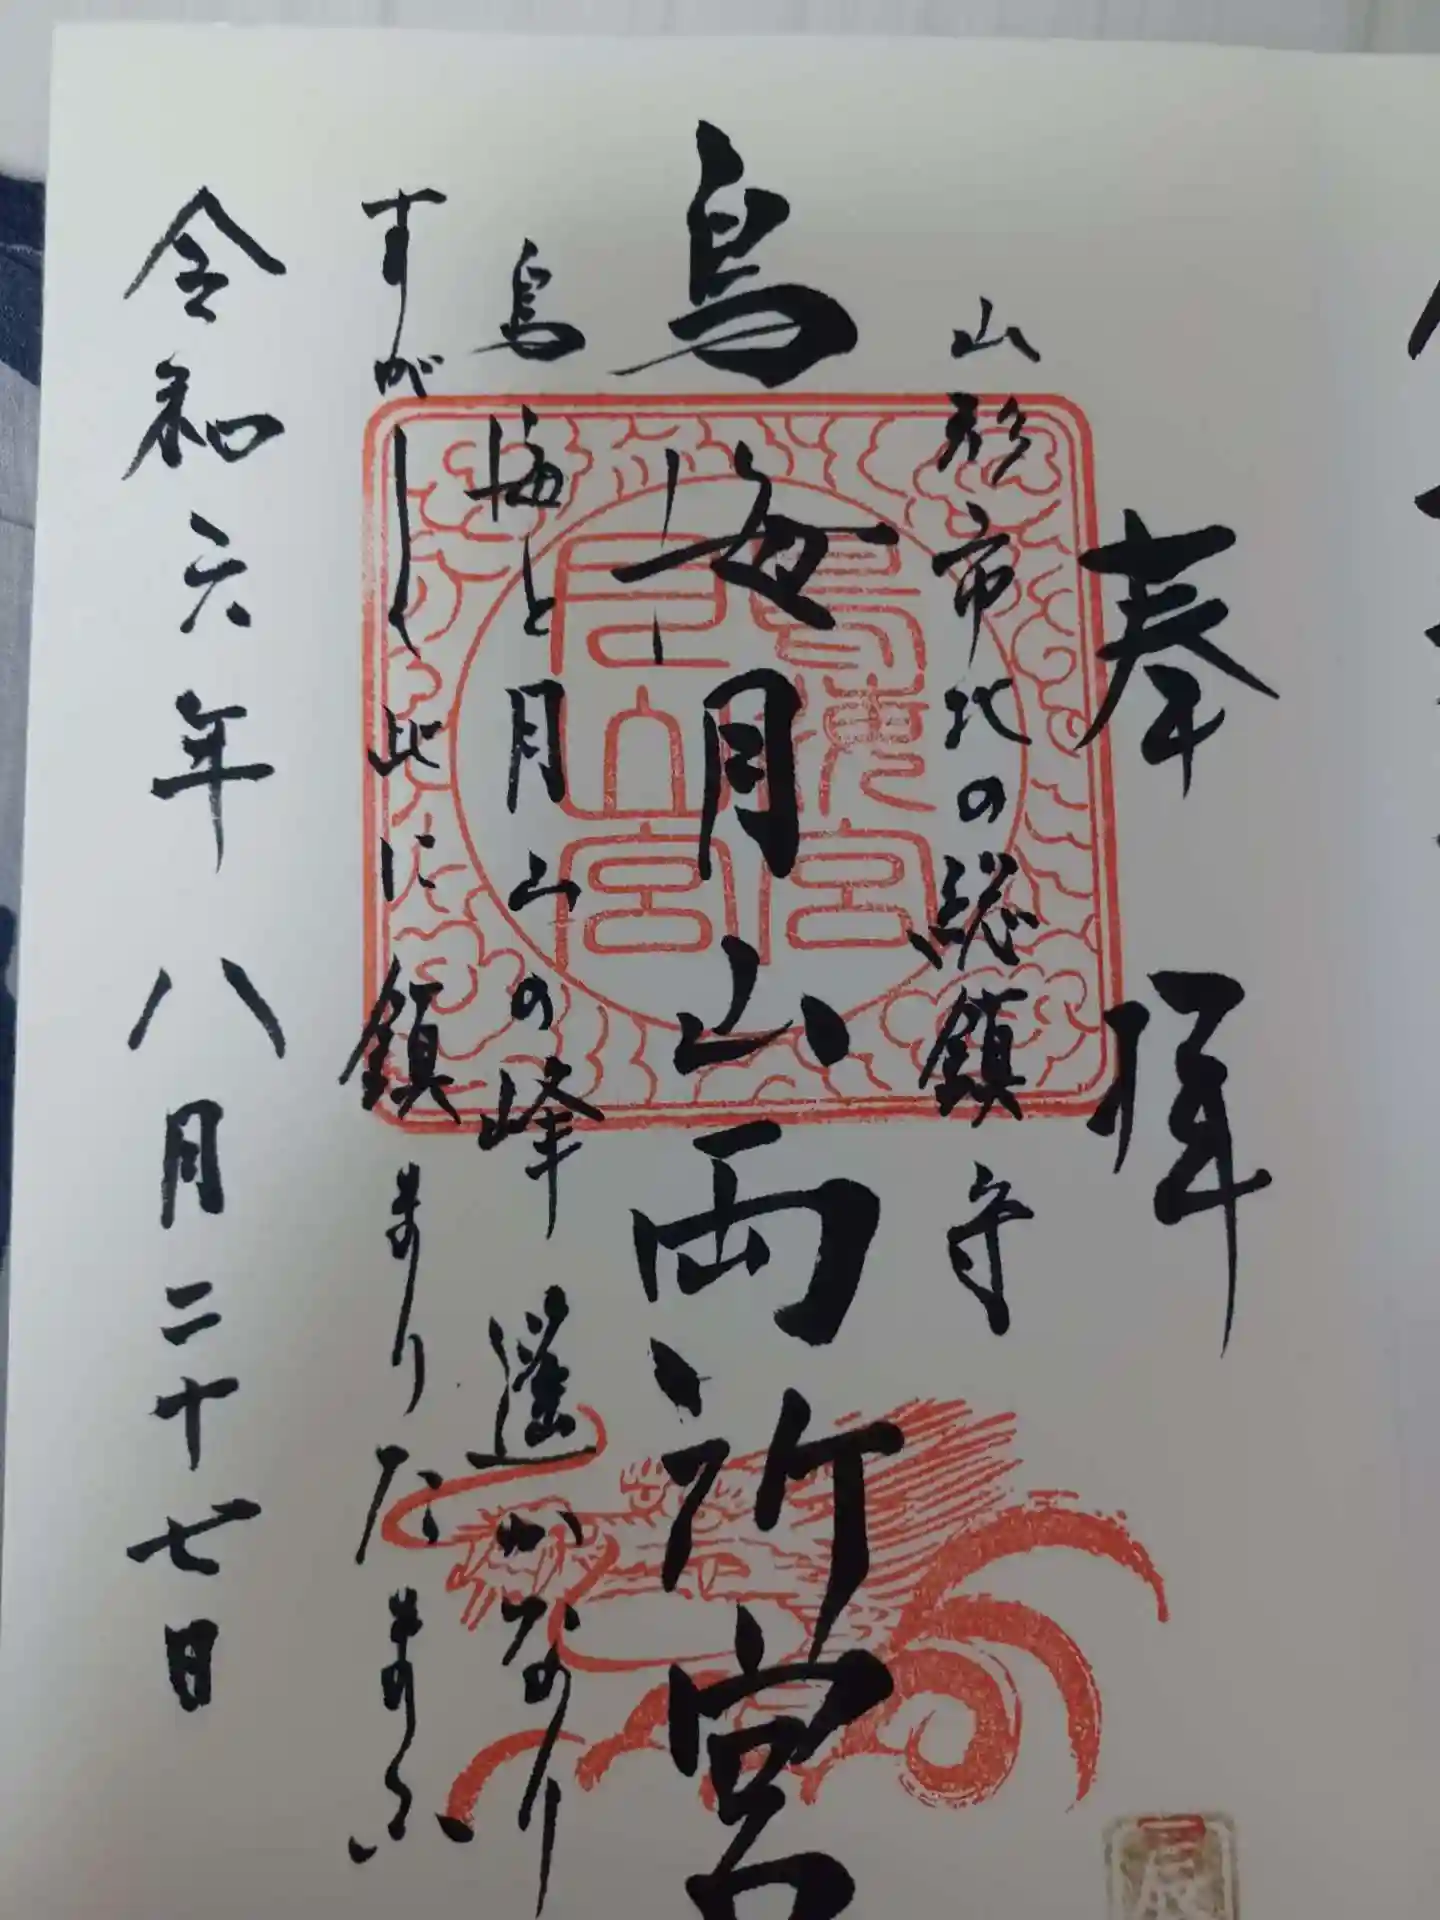 奉拝
山形市北の総鎮守
鳥海月山両所宮
鳥海と月山の峰遥かなり
すがしく此に鎮まりたまふ
令和六年八月二十七日
鳥海宮
月山宮
辰